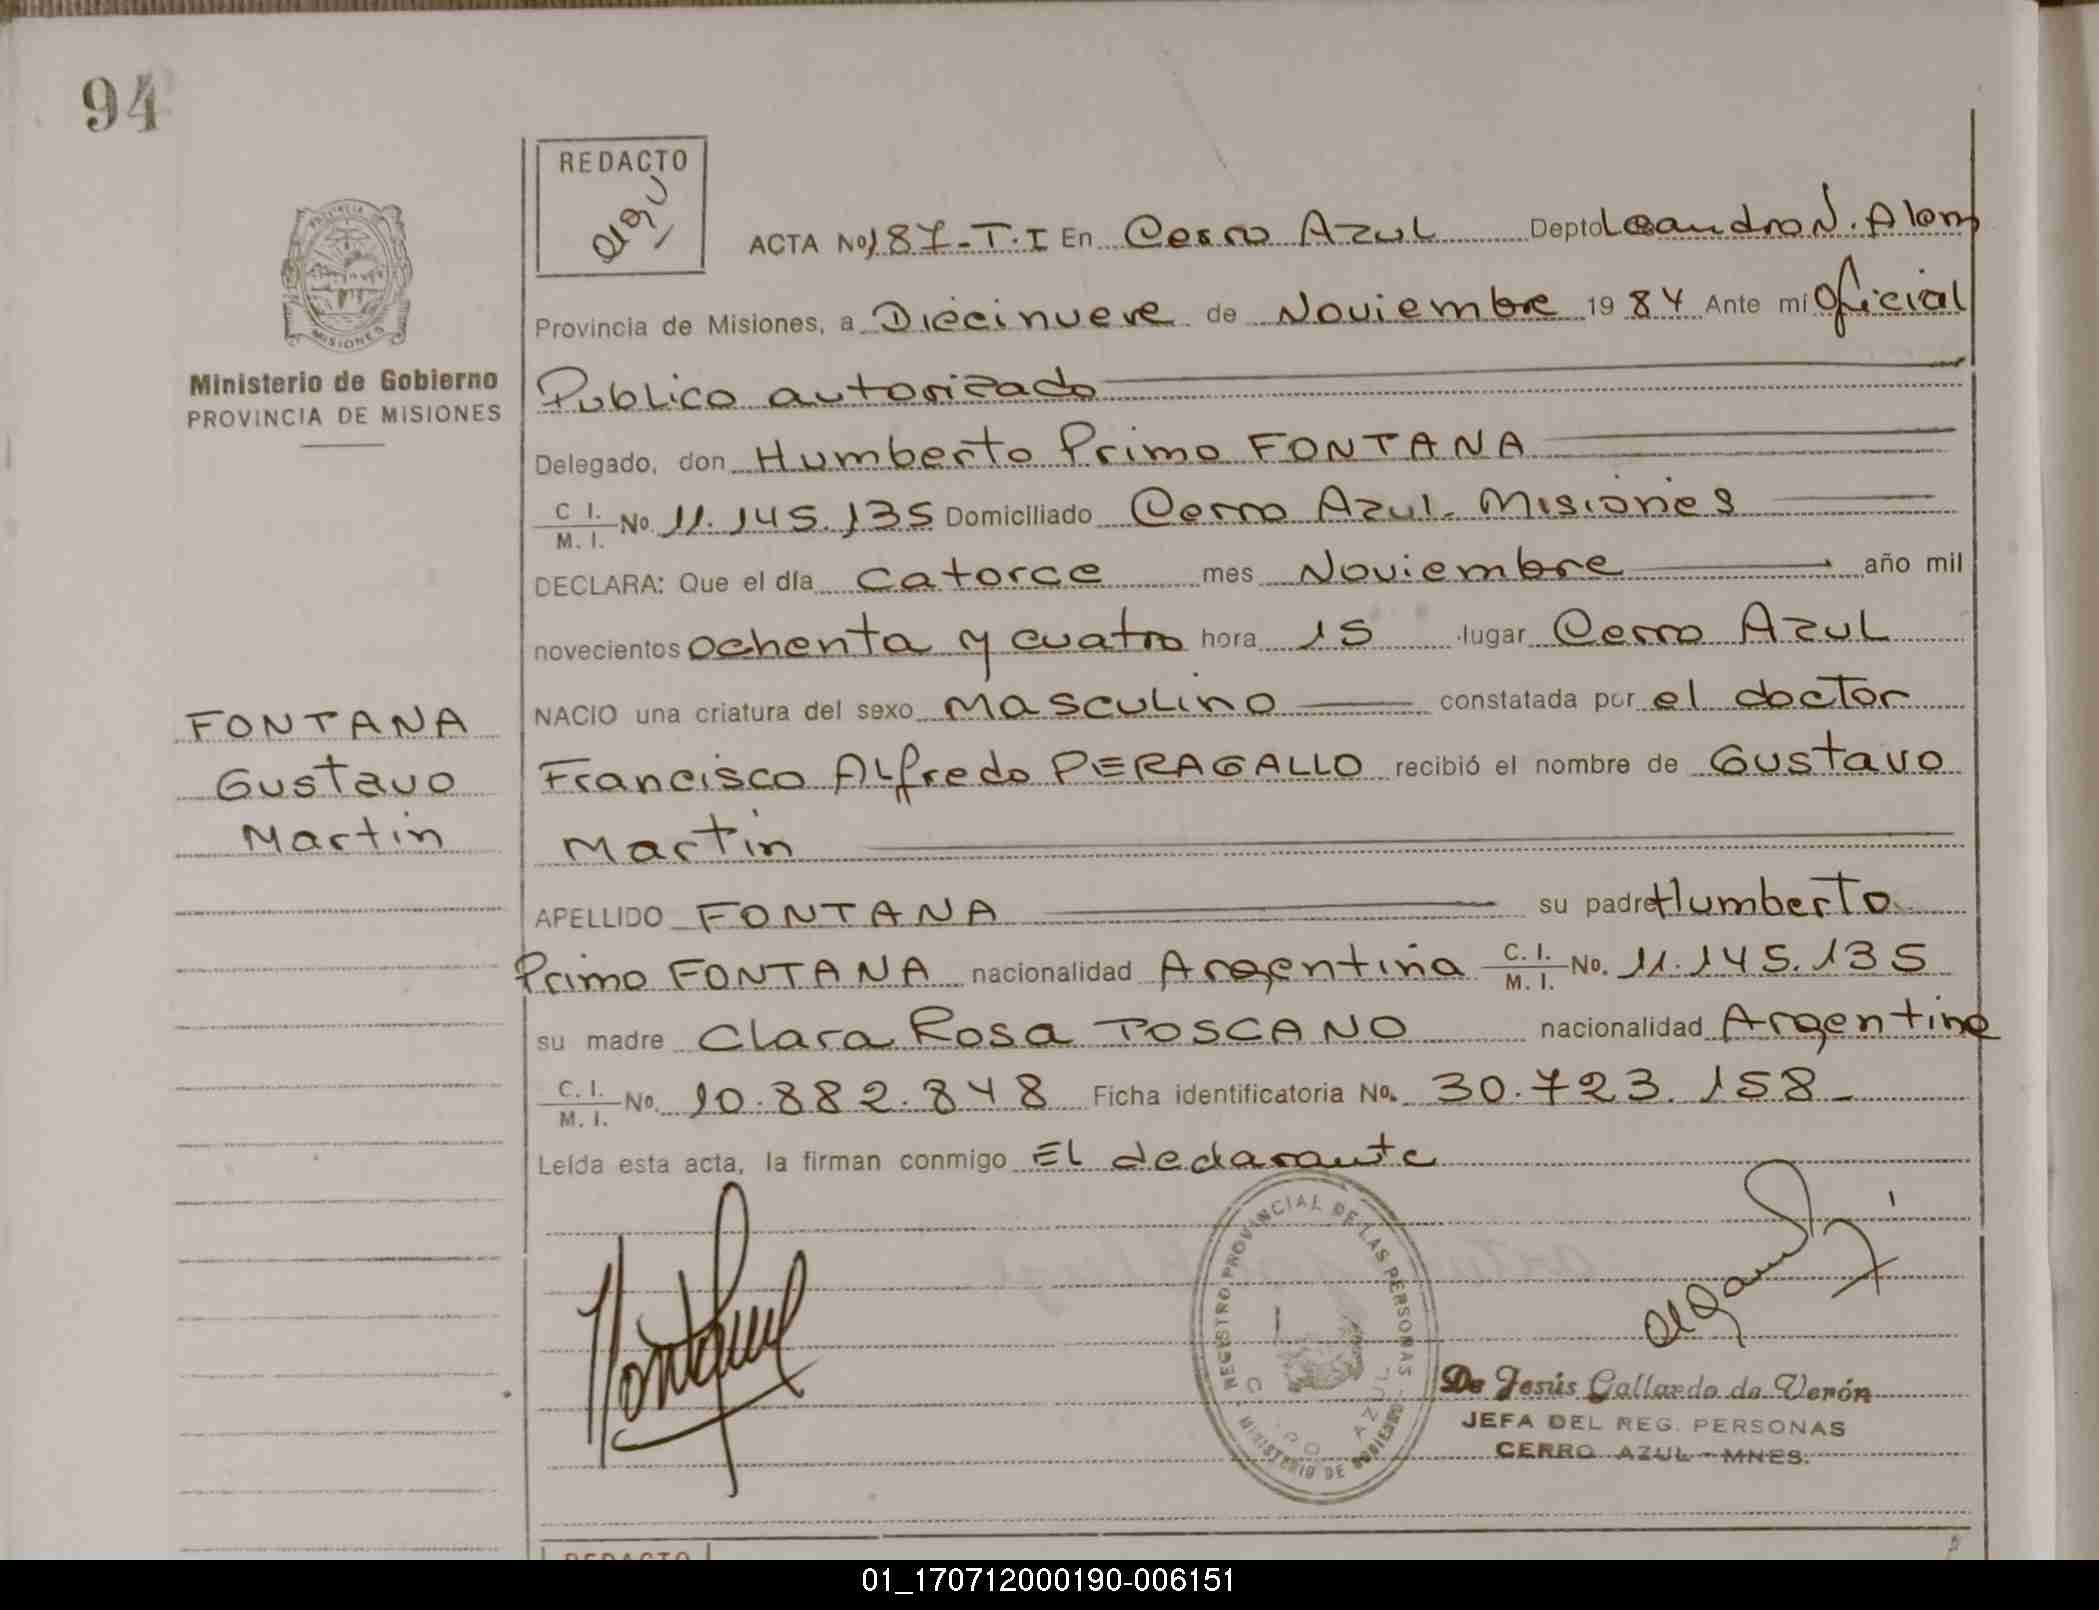 94
REDACTO
ACTA No 187-T.I En Cerro Azul Depto Leandro N. Alem
Provincia de Misiones, a Diecinueve de Noviembre 1984 Ante mi Oficial
Publico autorizado
Delegado, don Humberto Primo FONTANA
C I. / M. I. No. 11.145.135 Domiciliado Cerro Azul. Misiones
DECLARA: Que el día catorce mes Noviembre año mil
novecientos ochenta y cuatro hora 15 lugar Cerro Azul
NACIO una criatura del sexo masculino constatada por el doctor
Francisco Alfredo PERAGALLO recibió el nombre de Gustavo
Martin
APELLIDO FONTANA su padre Humberto
Primo FONTANA nacionalidad Argentina C. I. / M. I. No. 11.145.135
su madre Clara Rosa TOSCANO nacionalidad Argentina
C. I. / M. I. No. 10.882.848 Ficha identificatoria No. 30.723.158-
Leída esta acta, la firman conmigo El declarante
PROVINCIA
MISIONES
Ministerio de Gobierno
PROVINCIA DE MISIONES
FONTANA
Gustavo
Martin
REGISTRO PROVINCIAL DE LAS PERSONAS
MINISTERIO DE GOBIERNO
AZUL
De Jesús Gallardo de Verón
JEFA DEL REG. PERSONAS
CERRO AZUL - MNES.
REDACTO
01_170712000190-006151